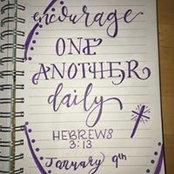 encourage
ONE
ANOTHER
daily
HEBREWS
3:13
January 9th